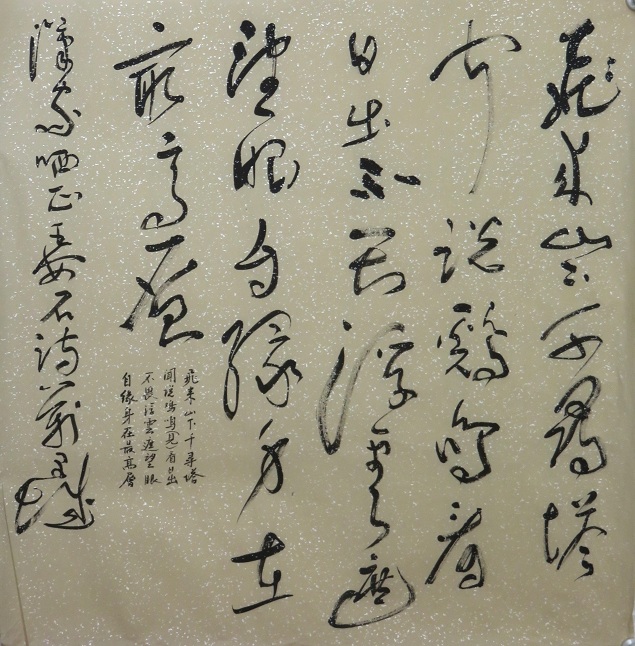 飛来山下千尋塔
聞説鷄鳴看
日出不畏浮雲遮
望眼自緣身在
最高層
飛來山下千尋塔
聞說鳴看日出
不畏浮雲遮望眼
自緣身在最高層
家哂正王安石詩